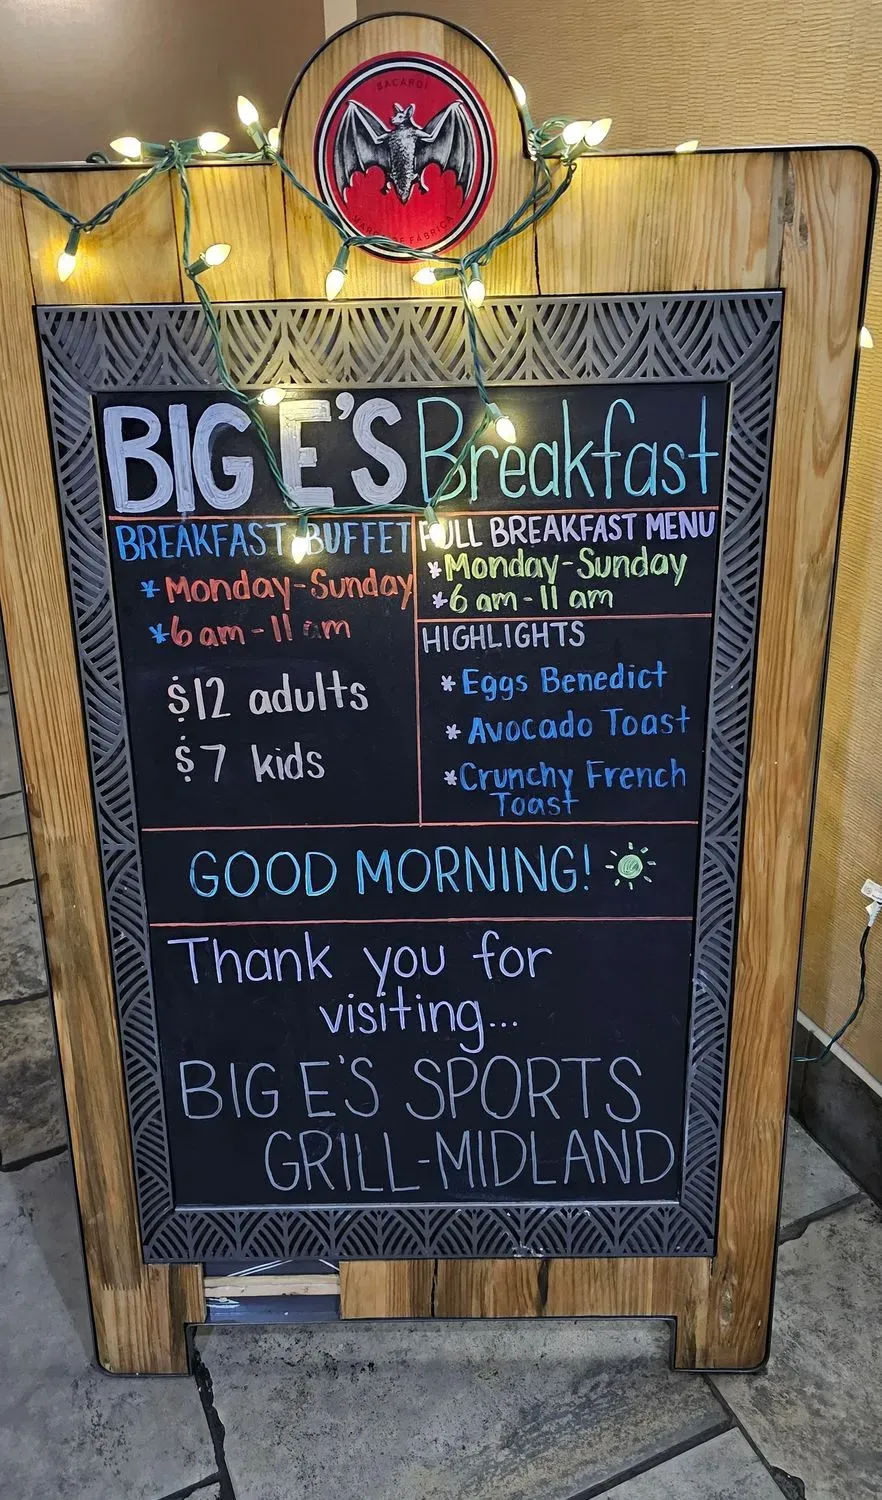 BACARDI
MARCA DE FÁBRICA
BIG E'S Breakfast
BREAKFAST BUFFET
* Monday-Sunday
* 6 am - 11 am
$12 adults
$7 kids
FULL BREAKFAST MENU
* Monday-Sunday
* 6 am - 11 am
HIGHLIGHTS
* Eggs Benedict
* Avocado Toast
* Crunchy French
Toast
GOOD MORNING!
Thank you for
visiting...
BIG E'S SPORTS
GRILL-MIDLAND